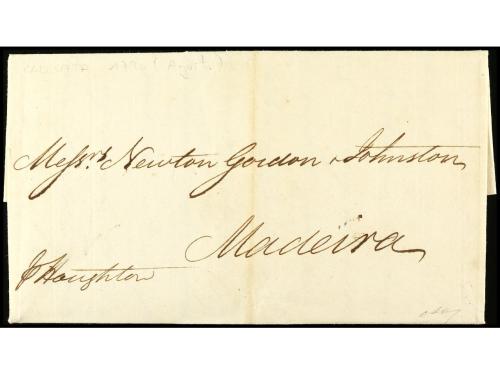 Messrs. Newton Gordon & Johnston
Madeira
p Houghton